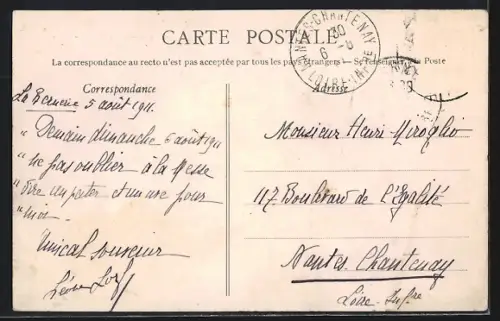 CARTE POSTALE
La correspondance au recto n'est pas acceptée par tous les pays étrangers - Se renseigner à la Poste
Correspondance
Adresse
NANTES-CHANTENAY
LOIRE-INFRE
5 août 1911.
"Demain dimanche 6 août 1911
"ne pas oublier à la Messe
"dire un pater et un ave pour
"moi
Amical souvenir
Monsieur Henri Miroglio
117 Boulevard de l'Égalité
Nantes Chantenay
Loire-Infre